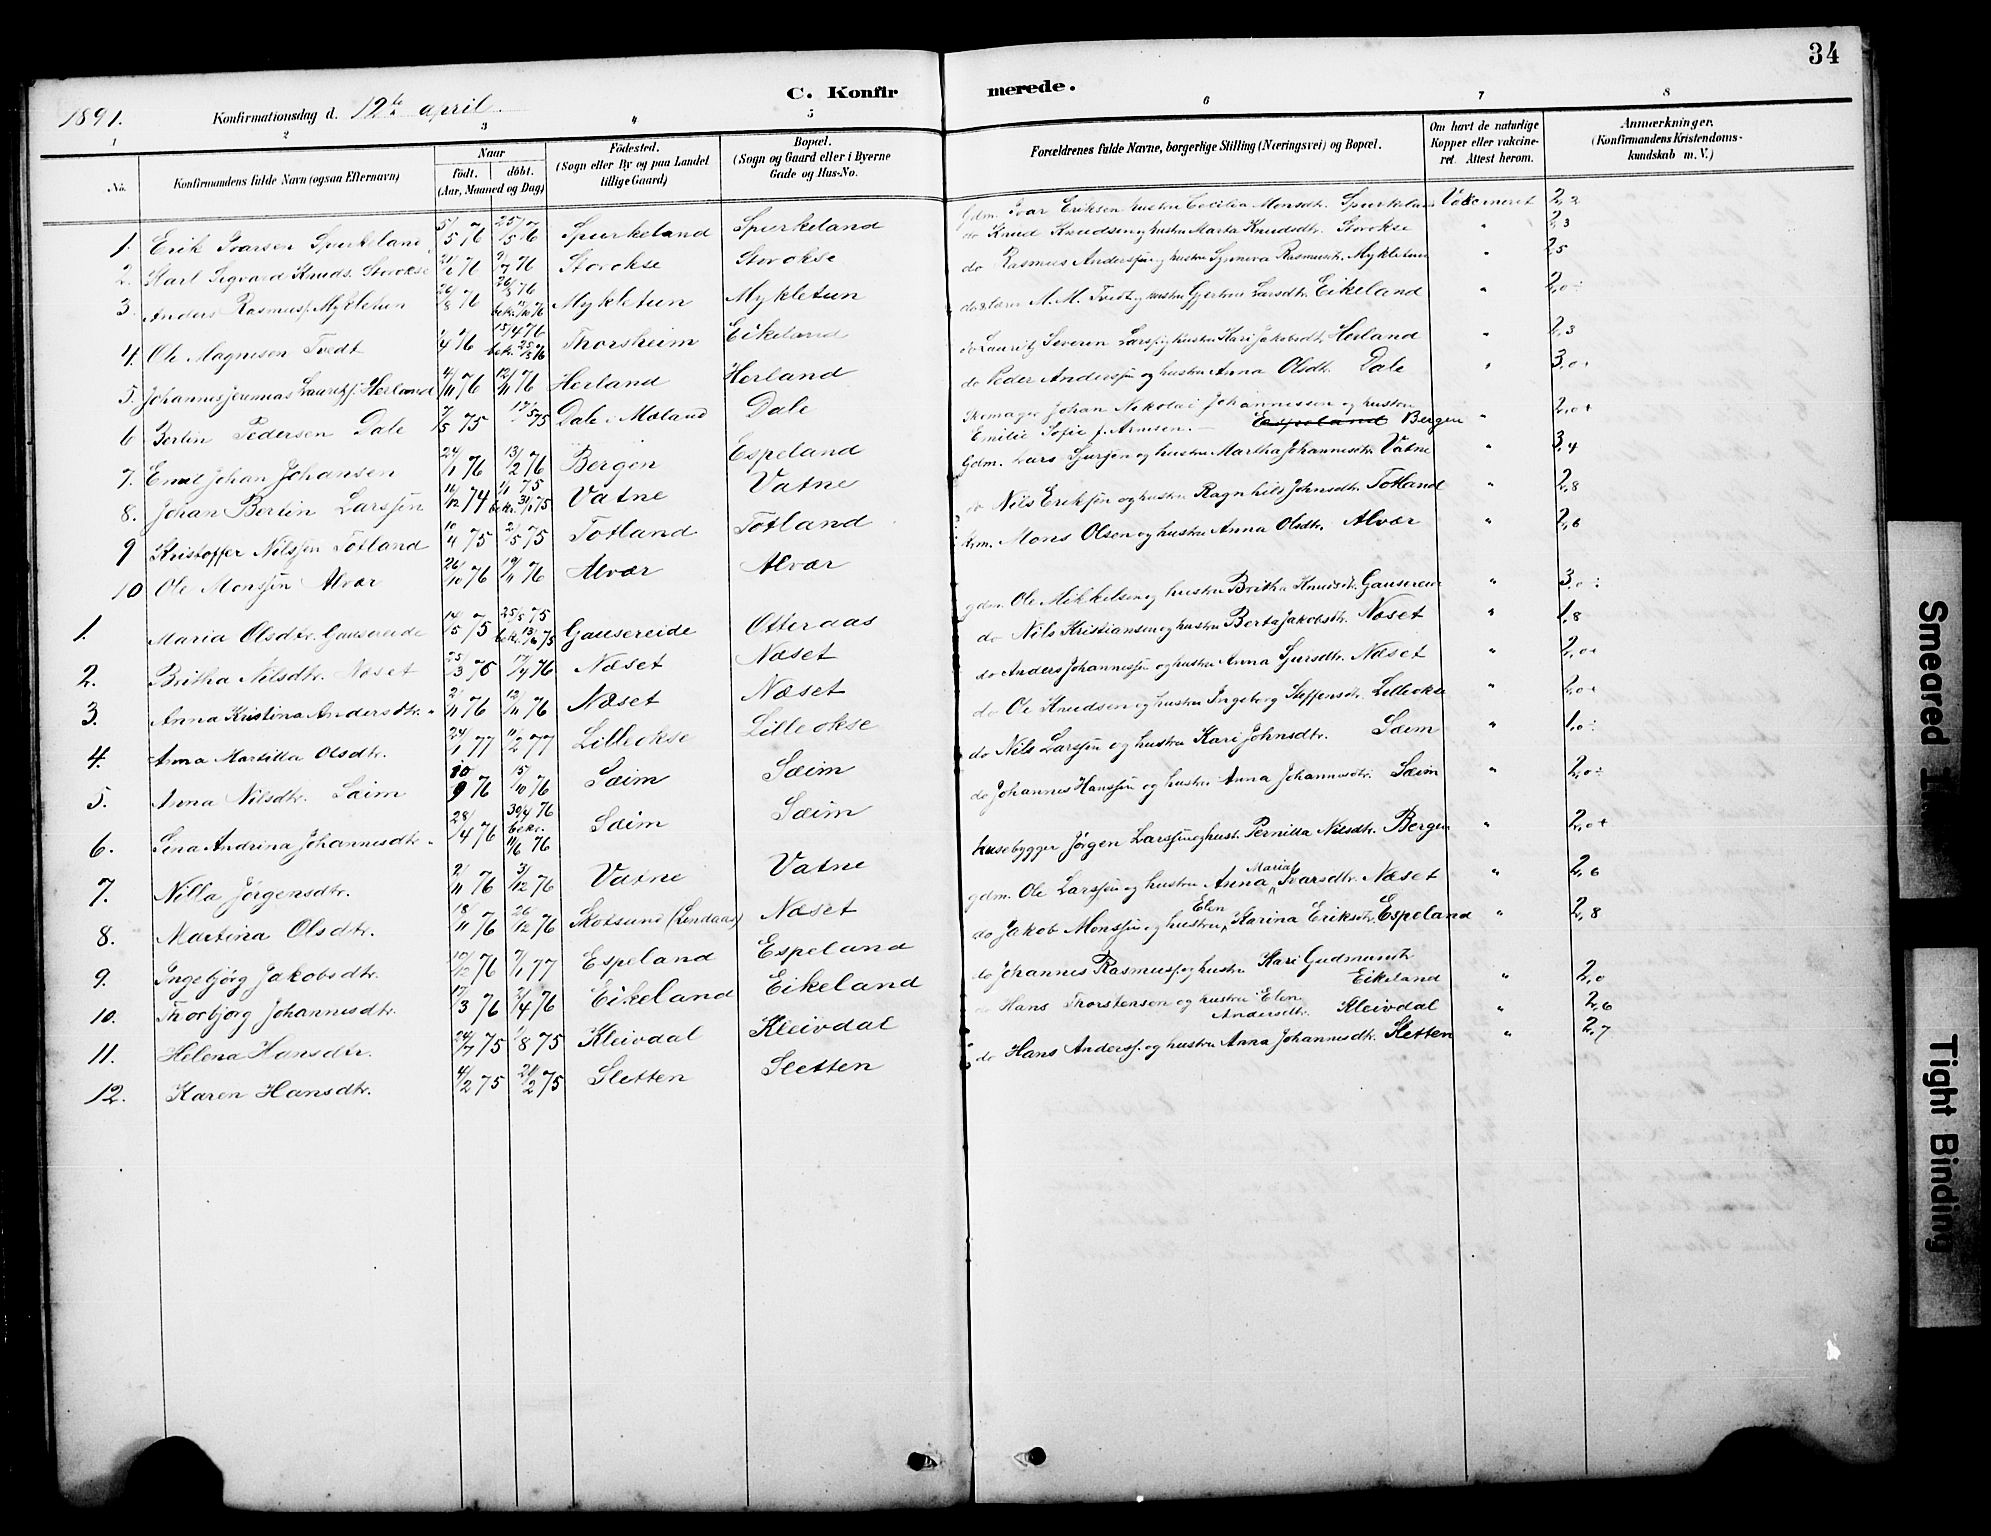 34
C. Konfirmerede.
1891. Konfirmationsdag d. 12te april
1 2 3 4 5 6 7 8
No. Konfirmandens fulde Navn (ogsaa Efternavn) Naar födt. döbt. (Aar, Maaned og Dag) Födested. (Sogn eller By og paa Landet tillige Gaard.) Bopæl. (Sogn og Gaard eller i Byerne Gade og Hus-No. Forældrenes fulde Navne, borgerlige Stilling (Næringsvei) og Bopæl. Om havt de naturlige Kopper eller vakcineret. Attest herom. Anmærkninger. (Konfirmandens Kristendomskundskab m. V.)
1. Erik Ivarsen Spurkeland 5/5 76 25/5 76 Spurkeland Spurkeland Gdm. Ivar Eriksen hustru Cecilia Monsdtr. Spurkeland Vakcineret 2,2
2. Karl Sigvard Knuds. Storokse 21/6 76 9/7 76 Storokse Storokse do Knud Knudsen og hustru Marta Knudsdtr. Storokse " 2,3
3. Anders Rasmuss. Mykletun 26/8 76 bekr. 12/10 76 Mykletun Mykletun do Rasmus Anderssen og hustru Synneva Rasmusdtr. Mykletun " 2,5
4. Ole Magnesen Tvedt 1/4 76 15/4 76 bekr. 25/5 76 Thorsheim Eikeland do & lærer M. M. Tvedt og hustru Gjertrue Larsdtr. Eikeland " 2,0÷
5. Johannes Jeremias Lauritzs. Herland 4/11 76 12/11 76 Herland Herland do Lauritz Severin Larss. og hustru Kari Jakobsdtr. Herland " 2,3
6 Bertin Pedersen Dale 7/5 75 17/5 75 Dale i Mæland Dale do Peder Anderssen og hustru Anna Olsdtr. Dale " 3,0+
7. Emil Johan Johansen 24/1 76 13/2 76 Bergen Espeland Skomager Johan Nikolai Johannessen og hustru Emilie Sofie f. Arnesen. Espeland Bergen " 2,0+
8. Johan Bertin Larssen 16/12 74 1/1 75 bekr. 31/1 75 Vatne Vatne Gdm. Lars Sjurssen og hustru Martha Johannesdtr. Vatne " 3,4
9 Kristoffer Nilssen Totland 10/4 75 2/5 75 Totland Totland do Nils Erikssen og hustru Ragnhild Johnsdtr. Totland " 2,8
10 Ole Monssen Alvær 26/10 76 19/11 76 Alvær Alvær Mons Olsen og hustru Anna Olsdtr. Alvær " 2,6
1. Maria Olsdtr. Gausereide 14/5 75 25/5 75 bekr. 13/6 75 Gausereide Otteraas gdm. Ole Mikkelsen og hustru Britha Knudsdtr. Gausereid " 3,0÷
2. Britha Nilsdtr. Næset 25/3 76 17/4 76 Næset Næset do Nils Kristiansen og hustru Berta Jakobsdtr. Næset " 1,8
3. Anna Kristina Andersdtr. " 2/11 76 12/11 76 Næset Næset do Anders Johannessen og hustru Anna Sjursdtr. Næset " 2,0+
4. Anna Martilla Olsdtr. 24/1 77 11/2 77 Lilleokse Lilleokse do Ole Knudsen og hustru Ingeborg Steffensdtr. Lilleokse " 2,0+
5. Anna Nilsdtr. Sæim 10/9 76 15/10 76 Sæim Sæim do Nils Larssen og hustru Kari Johnsdtr. Sæim " 1,0÷
6. Sina Andrina Johannesdtr. " 28/4 76 30/4 76 bekr. 11/6 76 Sæim Sæim do Johannes Hanssen og hustru Anna Johannesdtr. Sæim " 2,0÷
7. Nilla Jørgensdtr. 2/11 76 3/12 76 Vatne Vatne husebygger Jörgen Larssen og hust. Pernilla Nilsdtr. Bergen " 2,0+
8. Martina Olsdtr. 18/11 76 26/12 76 Skotsund (Lindaas) Næset gdm. Ole Larssen og hustru Anna Maria Ivarsdtr. Næset " 2,6
9. Ingebjörg Jakobsdtr. 10/12 76 7/1 77 Espeland Espeland do Jakob Monssen og hustru Elen Karina Eriksdtr. Espeland " 2,8
10. Thorbjörg Johannesdtr. 17/3 76 2/4 76 Eikeland Eikeland do Johannes Rasmuss. og hustru Kari Gudmundsdtr. Eikeland " 2,0
11. Helena Hansdtr. 24/7 75 1/8 75 Kleivdal Kleivdal do Hans Thorstensen og hustru Elen Andersdtr. Kleivdal " 2,6
12. Karen Hansdtr. 4/2 75 21/2 75 Sletten Sletten do Hans Anderss. og hustru Anna Johannesdtr. Sletten " 2,7
Smeared
Tight Binding